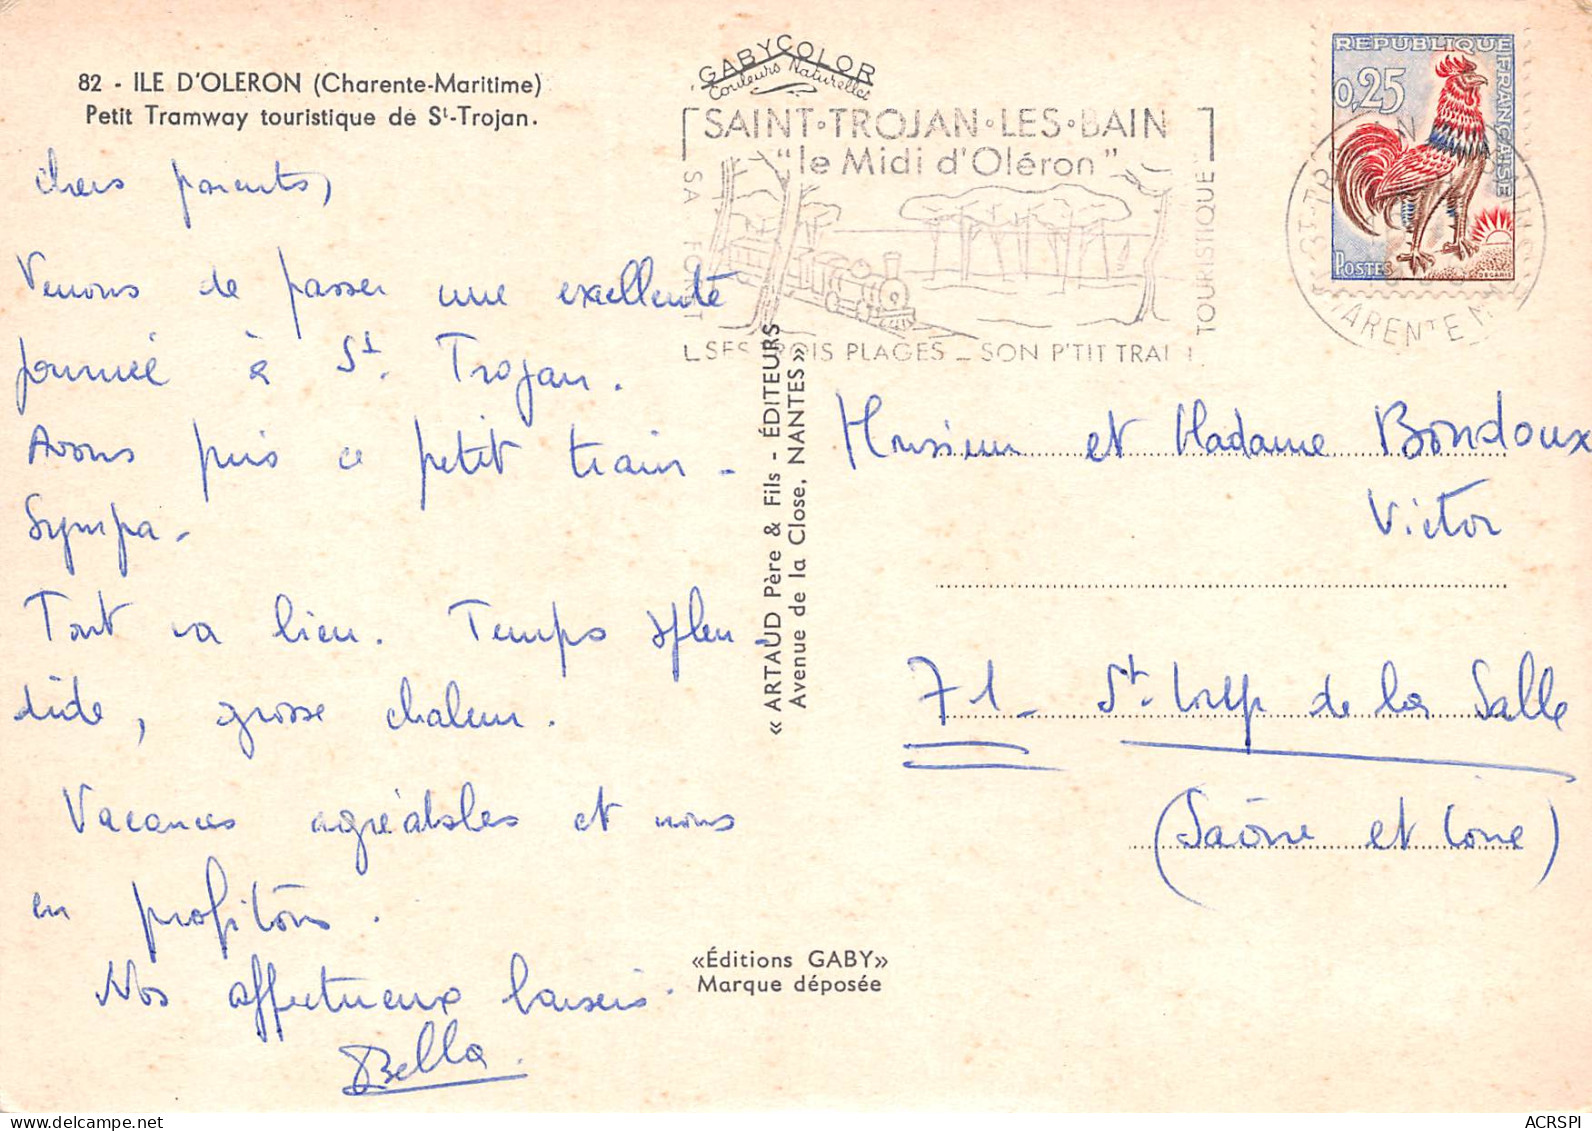 82 - ILE D'OLERON (Charente-Maritime)
Petit Tramway touristique de St-Trojan.
chers parents,
Venons de passer une excellente
journée à St. Trojan.
Avons pris ce petit train -
Sympa -
Tout va bien. Temps splen-
dide, grosse chaleur.
Vacances agréables et nous
en profitons.
Nos affectueux baisers.
Bella.
GABYCOLOR
Couleurs Naturelles
SAINT•TROJAN•LES•BAIN
"le Midi d'Oléron"
SA FORET
TOURISTIQUE
SES TROIS PLAGES _ SON P'TIT TRAIN
REPUBLIQUE FRANÇAISE
0,25
POSTES
DECARIS
« ARTAUD Père & Fils - ÉDITEURS
Avenue de la Close, NANTES »
Monsieur et Madame Bondoux
Victor
71 - St. Loup de la Salle
(Saône et Loire)
«Éditions GABY»
Marque déposée
ACRSPI